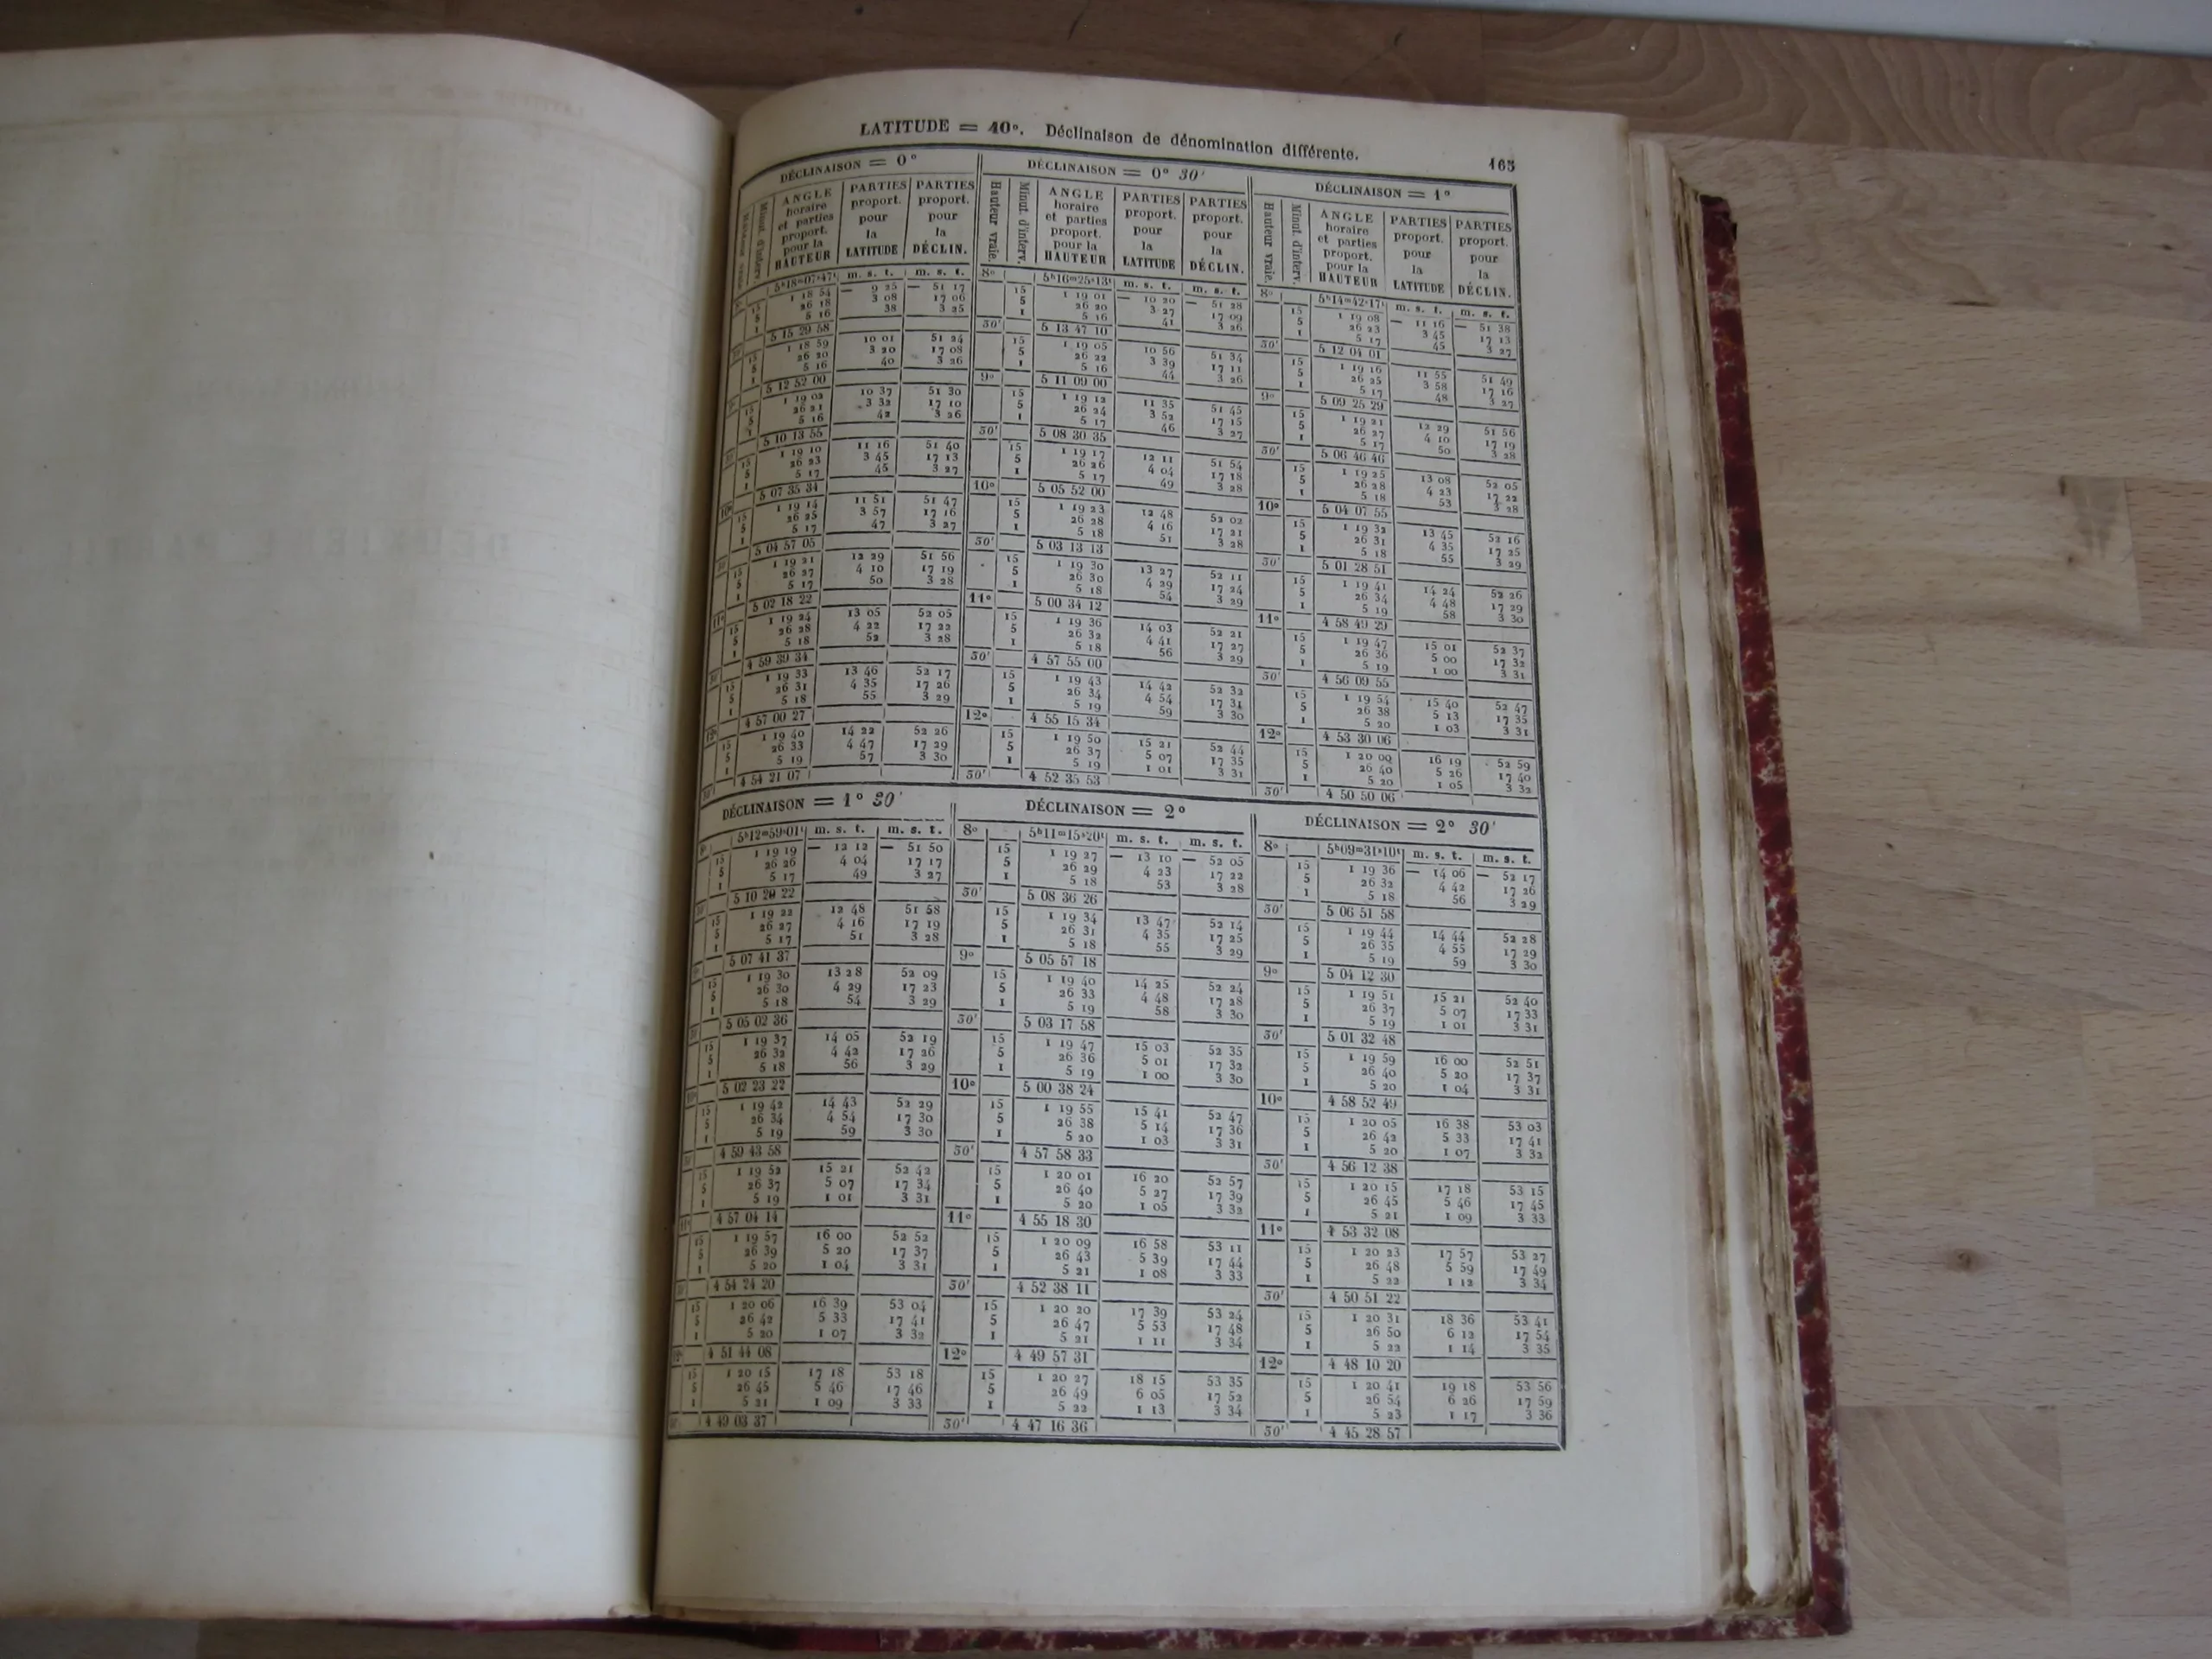 LATITUDE = 40°. Déclinaison de dénomination différente.
163
DÉCLINAISON = 0°
ANGLE horaire et parties proport. pour la HAUTEUR
PARTIES proport. pour la LATITUDE
PARTIES proport. pour la DÉCLIN.
5h18m07s47t m. s. t. m. s. t.
15 1 18 54 — 9 25 — 51 17
5 26 18 3 08 17 06
1 5 16 38 3 25
5 15 29 58
15 1 18 59 10 01 51 24
5 26 20 3 20 17 08
1 5 16 40 3 26
5 12 52 00
15 1 19 02 10 37 51 30
5 26 21 3 32 17 10
1 5 16 42 3 26
5 10 13 55
15 1 19 10 11 16 51 40
5 26 23 3 45 17 13
1 5 17 45 3 27
10° 5 07 35 34
15 1 19 14 11 51 51 47
5 26 25 3 57 17 16
1 5 17 47 3 27
5 04 57 05
15 1 19 21 12 29 51 56
5 26 27 4 10 17 19
1 5 17 50 3 28
11° 5 02 18 22
15 1 19 24 13 05 52 05
5 26 28 4 22 17 22
1 5 18 52 3 28
4 59 39 34
15 1 19 33 13 46 52 17
5 26 31 4 35 17 26
1 5 18 55 3 29
12° 4 57 00 27
15 1 19 40 14 22 52 26
5 26 33 4 47 17 29
1 5 19 57 3 30
30' 4 54 21 07
DÉCLINAISON = 0° 30'
Hauteur vraie.
Minut. d'interv.
ANGLE horaire et parties proport. pour la HAUTEUR
PARTIES proport. pour la LATITUDE
PARTIES proport. pour la DÉCLIN.
8° 5h16m25s13t m. s. t. m. s. t.
15 1 19 01 — 10 20 — 51 28
5 26 20 3 27 17 09
1 5 16 41 3 26
30' 5 13 47 10
15 1 19 05 10 56 51 34
5 26 22 3 39 17 11
1 5 16 44 3 26
9° 5 11 09 00
15 1 19 12 11 35 51 45
5 26 24 3 52 17 15
1 5 17 46 3 27
30' 5 08 30 35
15 1 19 17 12 11 51 54
5 26 26 4 04 17 18
1 5 17 49 3 28
10° 5 05 52 00
15 1 19 23 12 48 52 02
5 26 28 4 16 17 21
1 5 18 51 3 28
30' 5 03 13 13
15 1 19 30 13 27 52 11
5 26 30 4 29 17 24
1 5 18 54 3 29
11° 5 00 34 12
15 1 19 36 14 03 52 21
5 26 32 4 41 17 27
1 5 18 56 3 29
30' 4 57 55 00
15 1 19 43 14 42 52 32
5 26 34 4 54 17 31
1 5 19 59 3 30
12° 4 55 15 34
15 1 19 50 15 21 52 44
5 26 37 5 07 17 35
1 5 19 1 01 3 31
30' 4 52 35 53
DÉCLINAISON = 1°
Hauteur vraie.
Minut. d'interv.
ANGLE horaire et parties proport. pour la HAUTEUR
PARTIES proport. pour la LATITUDE
PARTIES proport. pour la DÉCLIN.
8° 5h14m42s17t m. s. t. m. s. t.
15 1 19 08 — 11 16 — 51 38
5 26 23 3 45 17 13
1 5 17 45 3 27
30' 5 12 04 01
15 1 19 16 11 55 51 49
5 26 25 3 58 17 16
1 5 17 48 3 27
9° 5 09 25 29
15 1 19 21 12 29 51 56
5 26 27 4 10 17 19
1 5 17 50 3 28
30' 5 06 46 46
15 1 19 25 13 08 52 05
5 26 28 4 23 17 22
1 5 18 53 3 28
10° 5 04 07 55
15 1 19 32 13 45 52 16
5 26 31 4 35 17 25
1 5 18 55 3 29
30' 5 01 28 51
15 1 19 41 14 24 52 26
5 26 34 4 48 17 29
1 5 19 58 3 30
11° 4 58 49 29
15 1 19 47 15 01 52 37
5 26 36 5 00 17 32
1 5 19 1 00 3 31
30' 4 56 09 55
15 1 19 54 15 40 52 47
5 26 38 5 13 17 35
1 5 20 1 03 3 31
12° 4 53 30 06
15 1 20 00 16 19 52 59
5 26 40 5 26 17 40
1 5 20 1 05 3 32
30' 4 50 50 06
DÉCLINAISON = 1° 30'
5h12m59s01t m. s. t. m. s. t.
15 1 19 19 — 12 12 — 51 50
5 26 26 4 04 17 17
1 5 17 49 3 27
5 10 20 22
15 1 19 22 12 48 51 58
5 26 27 4 16 17 19
1 5 17 51 3 28
5 07 41 37
15 1 19 30 13 28 52 09
5 26 30 4 29 17 23
1 5 18 54 3 29
5 05 02 36
15 1 19 37 14 05 52 19
5 26 32 4 42 17 26
1 5 18 56 3 29
5 02 23 22
15 1 19 42 14 43 52 29
5 26 34 4 54 17 30
1 5 19 59 3 30
4 59 43 58
15 1 19 52 15 21 52 42
5 26 37 5 07 17 34
1 5 19 1 01 3 31
11° 4 57 04 14
15 1 19 57 16 00 52 52
5 26 39 5 20 17 37
1 5 20 1 04 3 31
4 54 24 20
15 1 20 06 16 39 53 04
5 26 42 5 33 17 41
1 5 20 1 07 3 32
12° 4 51 44 08
15 1 20 15 17 18 53 18
5 26 45 5 46 17 46
1 5 21 1 09 3 33
4 49 03 37
DÉCLINAISON = 2°
8° 5h11m15s20t m. s. t. m. s. t.
15 1 19 27 — 13 10 — 52 05
5 26 29 4 23 17 22
1 5 18 53 3 28
30' 5 08 36 26
15 1 19 34 13 47 52 14
5 26 31 4 35 17 25
1 5 18 55 3 29
9° 5 05 57 18
15 1 19 40 14 25 52 24
5 26 33 4 48 17 28
1 5 19 58 3 30
30' 5 03 17 58
15 1 19 47 15 03 52 35
5 26 36 5 01 17 32
1 5 19 1 00 3 30
10° 5 00 38 24
15 1 19 55 15 41 52 47
5 26 38 5 14 17 36
1 5 20 1 03 3 31
30' 4 57 58 33
15 1 20 01 16 20 52 57
5 26 40 5 27 17 39
1 5 20 1 05 3 32
11° 4 55 18 30
15 1 20 09 16 58 53 11
5 26 43 5 39 17 44
1 5 21 1 08 3 33
30' 4 52 38 11
15 1 20 20 17 39 53 24
5 26 47 5 53 17 48
1 5 21 1 11 3 34
12° 4 49 57 31
15 1 20 27 18 15 53 35
5 26 49 6 05 17 52
1 5 22 1 13 3 34
30' 4 47 16 36
DÉCLINAISON = 2° 30'
8° 5h09m31s10t m. s. t. m. s. t.
15 1 19 36 — 14 06 — 52 17
5 26 32 4 42 17 26
1 5 18 56 3 29
30' 5 06 51 58
15 1 19 44 14 44 52 28
5 26 35 4 55 17 29
1 5 19 59 3 30
9° 5 04 12 30
15 1 19 51 15 21 52 40
5 26 37 5 07 17 33
1 5 19 1 01 3 31
30' 5 01 32 48
15 1 19 59 16 00 52 51
5 26 40 5 20 17 37
1 5 20 1 04 3 31
10° 4 58 52 49
15 1 20 05 16 38 53 03
5 26 42 5 33 17 41
1 5 20 1 07 3 32
30' 4 56 12 38
15 1 20 15 17 18 53 15
5 26 45 5 46 17 45
1 5 21 1 09 3 33
11° 4 53 32 08
15 1 20 23 17 57 53 27
5 26 48 5 59 17 49
1 5 22 1 12 3 34
30' 4 50 51 22
15 1 20 31 18 36 53 41
5 26 50 6 12 17 54
1 5 22 1 14 3 35
12° 4 48 10 20
15 1 20 41 19 18 53 56
5 26 54 6 26 17 59
1 5 23 1 17 3 36
30' 4 45 28 57